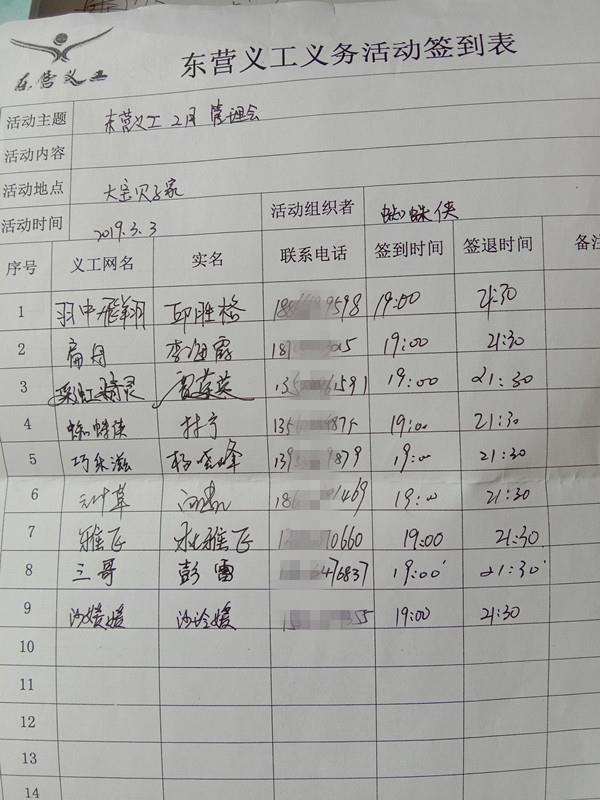 东营义工
东营义工义务活动签到表
活动主题 东营义工2月管理会
活动内容
活动地点 大宝贝之家
活动时间 2019.3.3 活动组织者 蜘蛛侠
序号 义工网名 实名 联系电话 签到时间 签退时间 备注
1 羽中飛翔 邱胜格 9598 19:00 21:30
2 扁舟 李海霞 19:00 21:30
3 彩虹精灵 1591 19:00 21:30
4 蜘蛛侠 19:00 21:30
5 巧乐滋 杨晓峰 9879 19:00 21:30
6 1469 19:00 21:30
7 雅飞 雅飞 70660 19:00 21:30
8 三哥 彭雷 476837 19:00 21:30
9 沙媛媛 沙冷媛 19:00 21:30
10
11
12
13
14